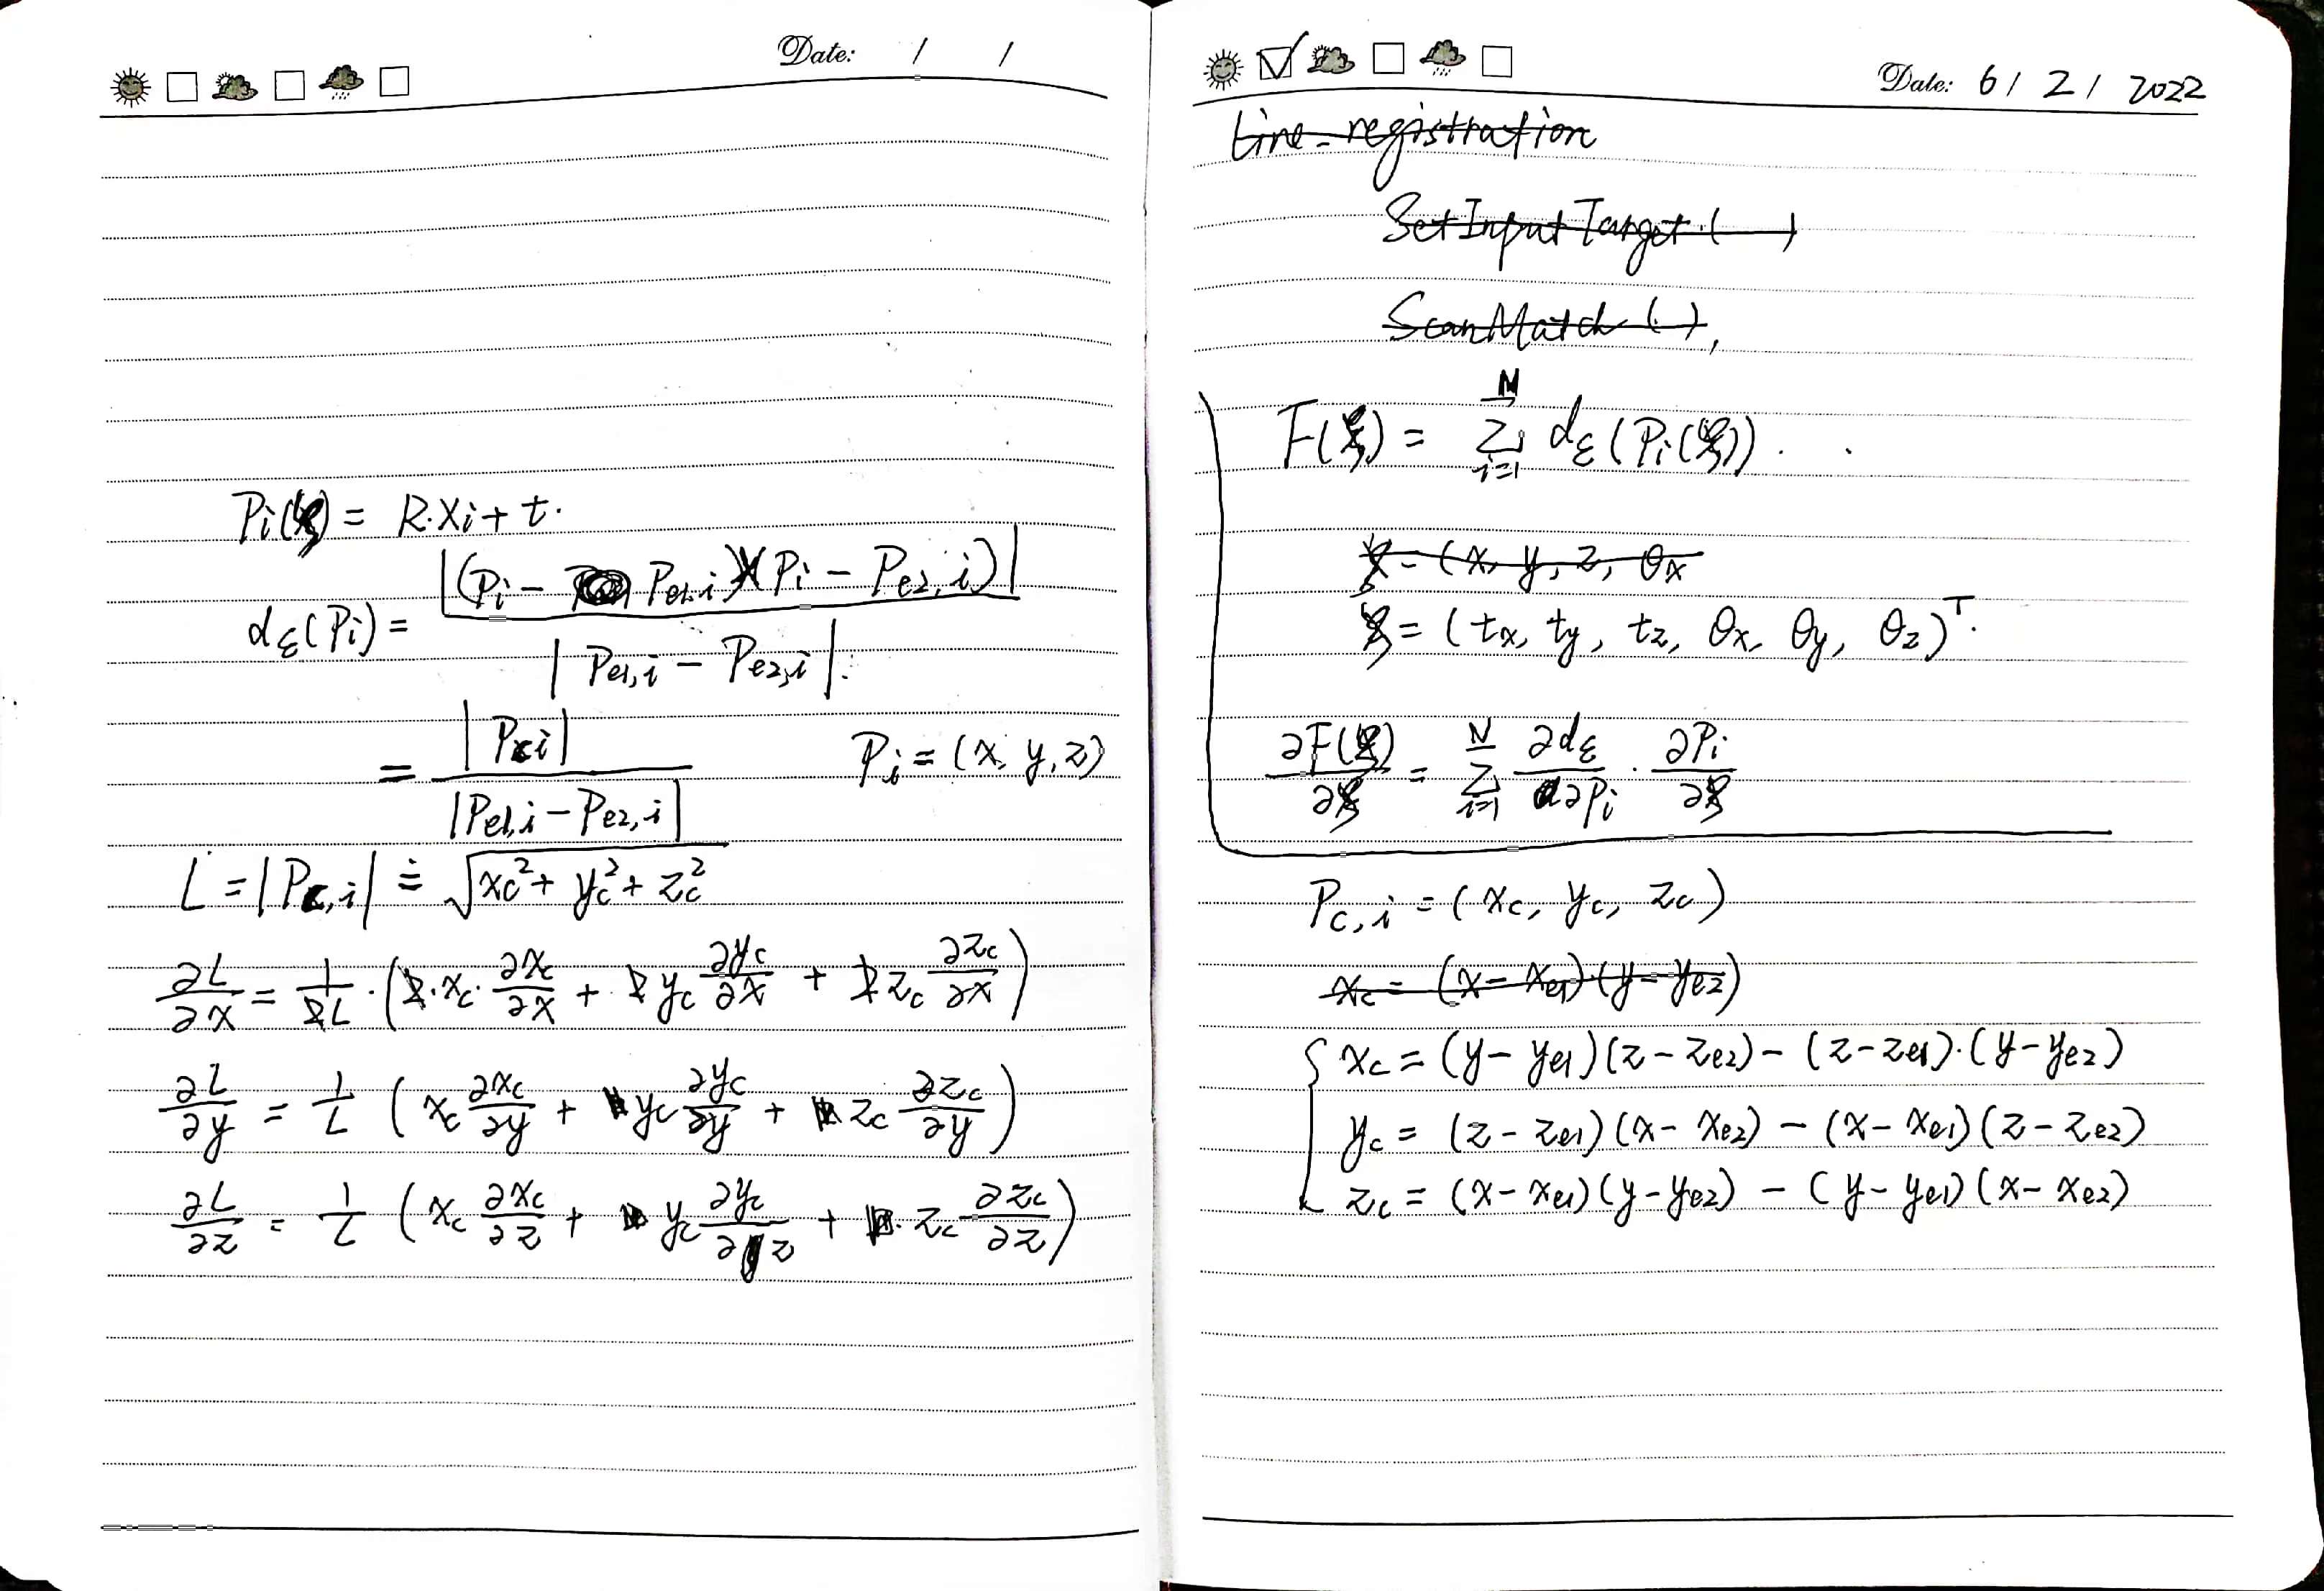 Date: / /
Pi(ξ) = R·Xi + t.
dε(Pi) = |(Pi - Pe1,i)X(Pi - Pe2,i)| / |Pe1,i - Pe2,i|.
= |Pci| / |Pe1,i - Pe2,i| Pi = (x, y, z)
L = |Pc,i| = √(xc² + yc² + zc²)
∂L/∂x = 1/2L · (2·xc·∂xc/∂x + 2yc ∂yc/∂x + 2zc ∂zc/∂x)
∂L/∂y = 1/L (xc ∂xc/∂y + yc ∂yc/∂y + zc ∂zc/∂y)
∂L/∂z = 1/L (xc ∂xc/∂z + yc ∂yc/∂z + zc ∂zc/∂z)
Date: 6/ 2/ 2022
Line-registration
SetInputTarget( )
ScanMatch( ),
F(ξ) = Σ_{i=1}^{N} dε(Pi(ξ)).
ξ = (x, y, z, θx
ξ = (tx, ty, tz, θx, θy, θz)ᵀ.
∂F(ξ)/∂ξ = Σ_{i=1}^{N} ∂dε/∂Pi · ∂Pi/∂ξ
Pc,i = (xc, yc, zc)
xc = (x - xe1)(y - ye2)
xc = (y - ye1)(z - ze2) - (z - ze1)·(y - ye2)
yc = (z - ze1)(x - xe2) - (x - xe1)(z - ze2)
zc = (x - xe1)(y - ye2) - (y - ye1)(x - xe2)